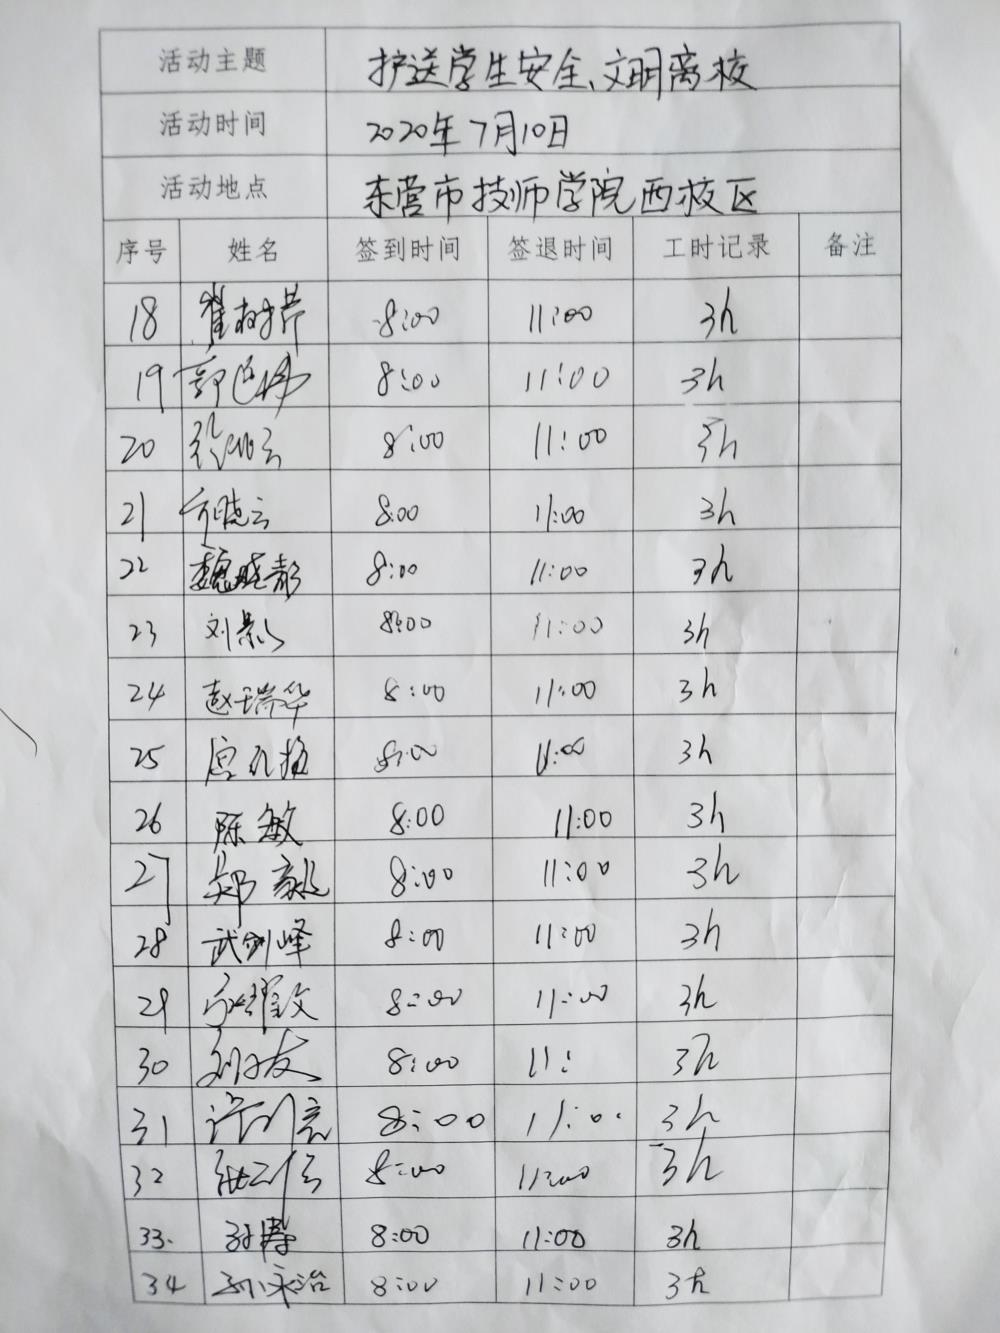 活动主题 护送学生安全、文明离校
活动时间 2020年7月10日
活动地点 东营市技师学院西校区
序号 姓名 签到时间 签退时间 工时记录 备注
18 崔树芹 8:00 11:00 3h
19 8:00 11:00 3h
20 8:00 11:00 3h
21 晓云 8:00 11:00 3h
22 魏晓彭 8:00 11:00 3h
23 刘景 8:00 11:00 3h
24 赵瑞华 8:00 11:00 3h
25 8:00 11:00 3h
26 陈敏 8:00 11:00 3h
27 郑毅 8:00 11:00 3h
28 武剑峰 8:00 11:00 3h
29 8:00 11:00 3h
30 8:00 11: 3h
31 许 8:00 11:00 3h
32 8:00 11:00 3h
33. 孙涛 8:00 11:00 3h
34 孙永治 8:00 11:00 3h